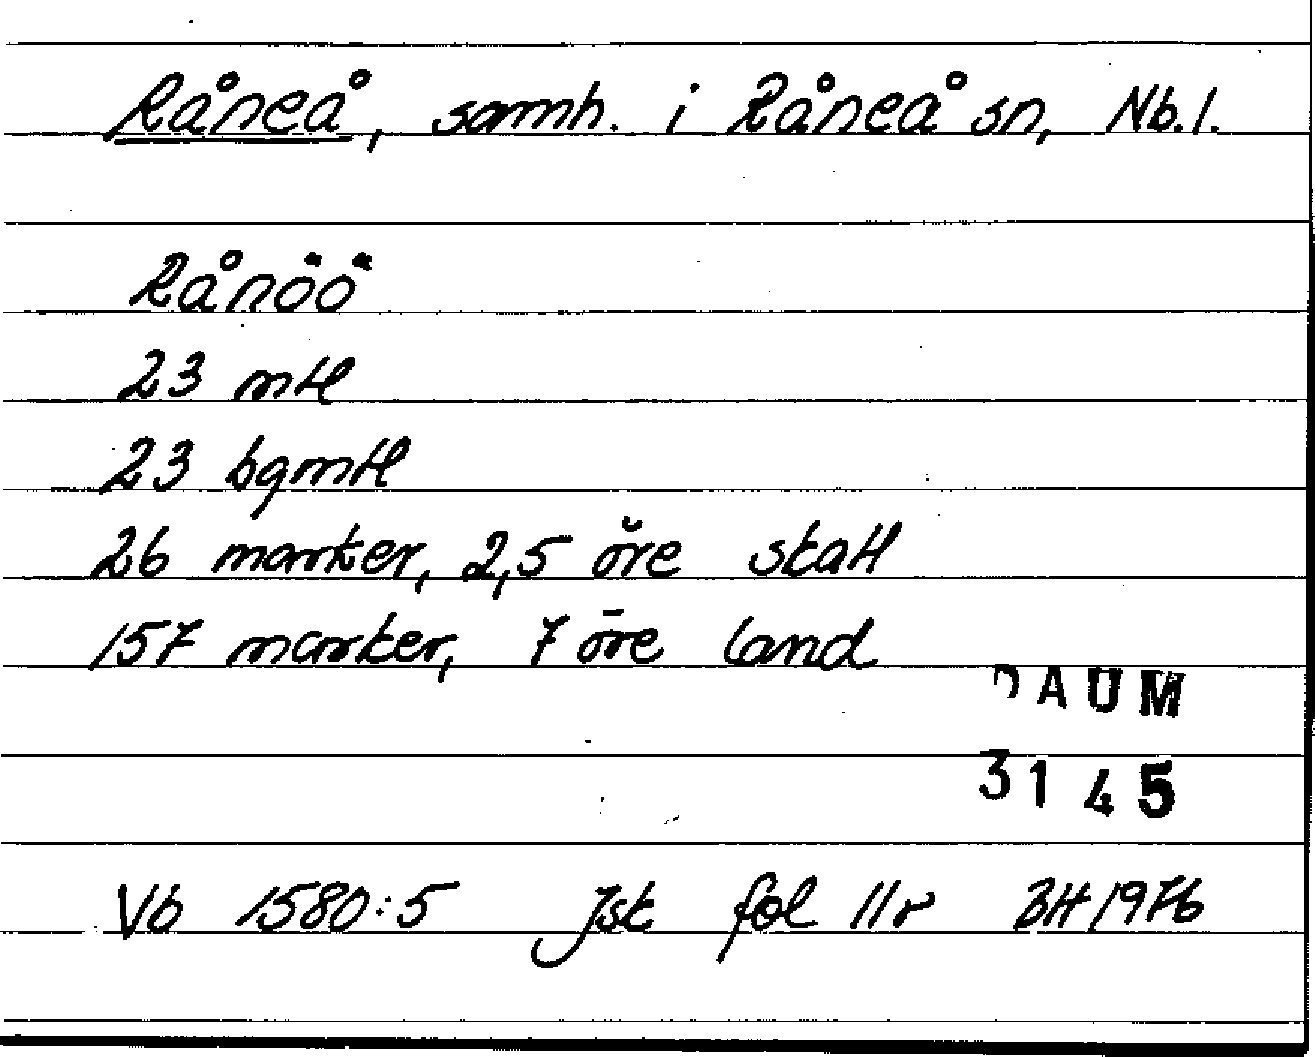 Råneå, samh. i Råneå sn, Nb.l.
Rånöö
23 mtl
23 bgmtl
26 marker, 2,5 öre skatt
157 marker, 7 öre land
DAUM
3145
Vb 1580:5 Jsk fol 11r BH 1976